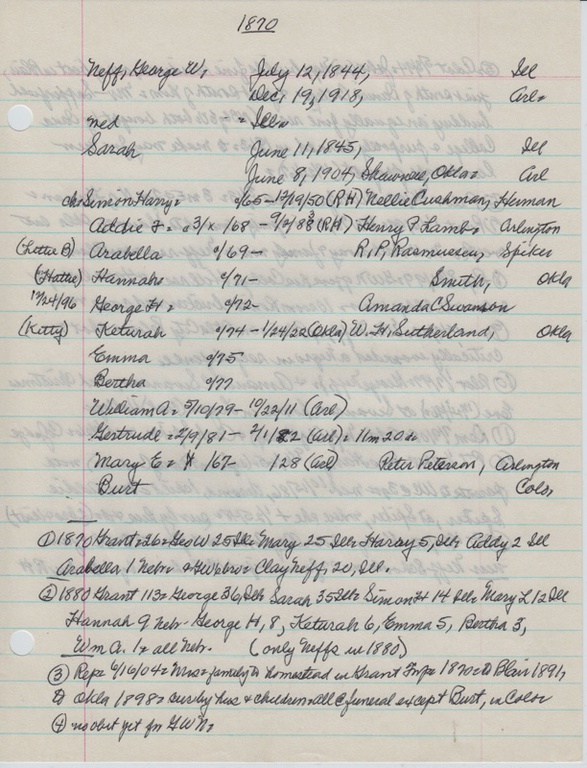 1870
Neff, George W. July 12, 1844, Ill
Dec, 19, 1918, Arl-
med = Ill-
Sarah June 11, 1845, Ill
June 8, 1904, Shawnee, Okla- Arl
ch: Simon Harry- 9/65-12/19/50 (RH) Nellie Cushman, Herman
Addie F- 3/ /68 - (RH) Henry P Lamb- Arlington
(Lottie B) Arabella 9/69- R.P. Rasmussen, Spiker
(Hattie) Hannah- 9/71- Smith, Okla
12/24/96 George H- 9/72- Amanda C Swanson
(Kitty) Keturah 9/74 - 1/24/22 (Okla) W.H. Sutherland, Okla
Emma 9/75
Bertha 9/77
William A- 5/10/79 - 10/22/11 (Arl)
Gertrude- 2/9/81 - 2/1/82 (Arl)- 11m 20d-
Mary E- /67- /28 (Arl) Peter Peterson, Arlington
Burt Colo,
① 1870 Grant-26-Geo W 25 Ill- Mary 25 Ill- Harry 5, Ill- Addy 2 Ill
Arabella 1 Nebr- Clay Neff, 20, Ill.
② 1880 Grant 113- George 36, Ill Sarah 35 Ill- Simon H 14 Ill- Mary L 12 Ill
Hannah 9 Neb- George H, 8, Keturah 6, Emma 5, Bertha 3,
Wm A. 1- all Neb- (only Neffs in 1880)
③ Rep- 6/16/04- Mrs- family to homestead in Grant Twp- 1870- to Blair 1891,
to Okla 1898- surv by hus + children- all @ funeral except Burt, in Color
④ no obit yet for G W N-